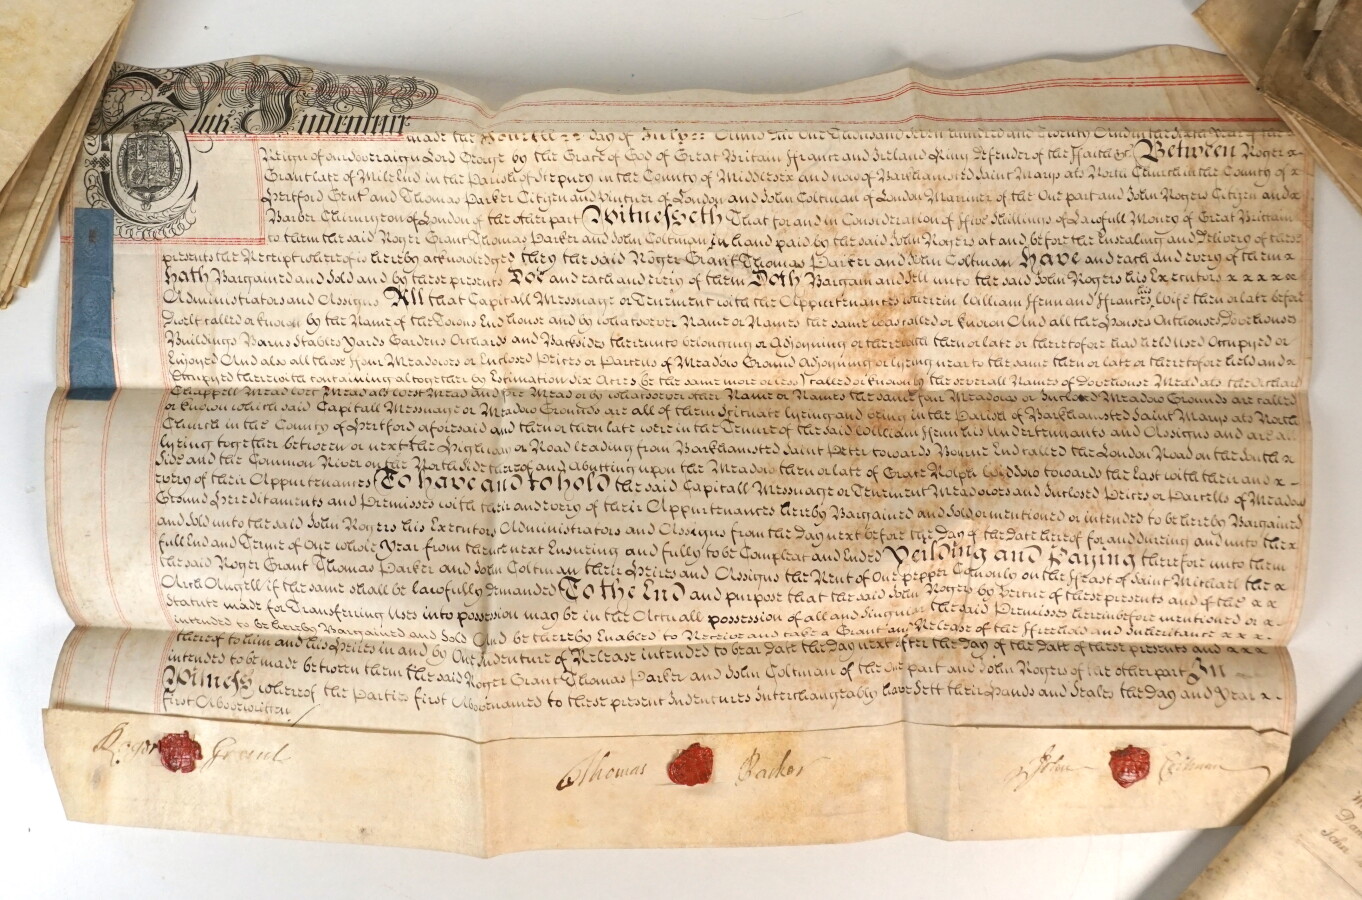 This Indenture
made the day of July Anno Dni One Thousand Seven hundred and Twenty And in the Sixth Year of the
Reign of our Soveraign Lord George by the Grace of God of Great Britain Ffrance and Ireland King Defender of the Ffaith &c Between Roger x
Grant late of Mile End in the Parish of Stepney in the County of Middlesex and now of Barkhamsted Saint Marys als North Church in the County of x
Hertford Gent and Thomas Parker Citizen and Vintner of London and John Coltman of London Marriner of the One part and John Rogers Citizen and x
Barber Chirurgeon of London of the other part Witnesseth That for and in Consideration of Ffive Shillings of Lawfull Money of Great Britain
to them the said Roger Grant Thomas Parker and John Coltman in hand paid by the said John Rogers at and before the Ensealing and Delivery of these
presents the Receipt whereof is hereby acknowledged they the said Roger Grant Thomas Parker and John Coltman Have and each and every of them x
Hath Bargained and Sold and by these presents Doe and each and every of them Doth Bargain and Sell unto the said John Rogers his Executors x x x x x
Administrators and Assigns All that Capitall Messuage or Tenement with the Appurtenances wherein William Ffenn and Ffrances his Wife then or late before
Dwelt called or known by the Name of the Towns End House and by whatsoever Name or Names the same was called or known And all the Houses Outhouses Dovehouses
Buildings Barns Stables Yards Gardens Orchards and Backsides thereunto belonging or Adjoyning or therewith then or late or theretofore had held used Occupyed or
Enjoyed And also all those Ffour Meadows or Enclosed Peices or Parcells of Meadow Ground Adjoyning or lyeing near to the same then or late or theretofore held and x
Occupyed therewith containing altogether by Estimation Six Acres be the same more or less called or known by the severall Names of Dovehouse Mead als the Orchard
Chappell Mead West Mead als West Mead and Mead or by whatsoever other Name or Names the same four Meadows or Inclosed Meadow Grounds are called
or known which said Capitall Messuage or Meadow Grounds are all of them Scituate lyeing and being in the Parish of Barkhamsted Saint Marys als North
Church in the County of Hertford aforesaid and then or then late were in the Tenure of the said William Ffenn his Undertenants and Assigns and are all
lyeing together between or next the Highway or Road leading from Barkhamsted Saint Peter towards Bourne End called the London Road on the South x
Side and the Common River on the North side thereof and abutting upon the Meadow then or late of Grace Widdow towards the East with their and x
every of their Appurtenances To have and to hold the said Capitall Messuage or Tenement Meadows and Inclosed Peices or Parcells of Meadow
Ground Hereditaments and Premisses with their and every of their Appurtenances hereby Bargained and Sold or mentioned or intended to be hereby Bargained
and Sold unto the said John Rogers his Executors Administrators and Assigns from the Day next before the Day of the Date hereof for and during and unto the x
full End and Terme of One whole Year from thence next Ensuring and fully to be Compleat and Ended Yeilding and Paying therefore unto them
the said Roger Grant Thomas Parker and John Coltman their Heires and Assigns the Rent of One pepper Cornonly on the Ffeast of Saint Michael the x
Arch Angell if the same shall be lawfully demanded To the End and purpose that the said John Rogers by Vertue of these presents and of the x x
Statute made for Transferring Uses into possession may be in the Actuall possession of all and Singular the said Premisses hereinbefore mentioned or x
intended to be hereby Bargained and Sold And be thereby Enabled to Receive and take a Grant and Release of the Ffreehold and Inheritance x x x
thereof to him and his Heires in and by One Indenture of Release intended to bear date the Day next after the Day of the Date of these presents and x x x
intended to be made between them the said Roger Grant Thomas Parker and John Coltman of the One part and John Rogers of the other part In
Witness whereof the Parties first Abovenamed to these present Indentures Interchangeably have Sett their Hands and Seales the Day and Year x
first Abovewritten
Roger Grant Thomas Parker John Coltman
John